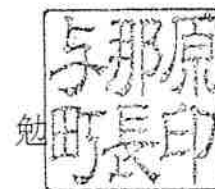 勉
与那原
町長印